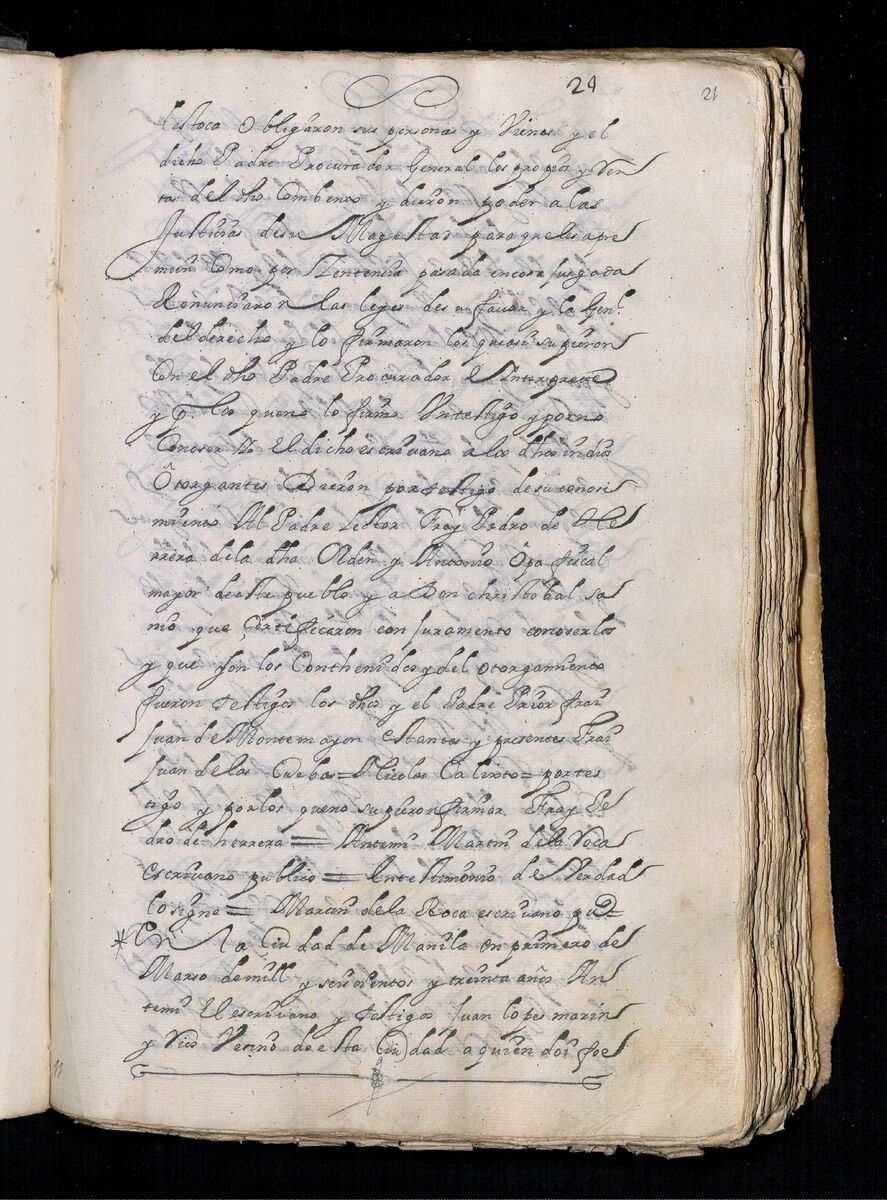 24
21
lestoca obligaron sus personas y Vienes y el
dicho Padre Procurador General los propios y Ren
tas del dho Combento y dieron poder a las
Justicias de su Magestad para que les apre
mien Como por Sentencia pasada en cosa Jusgada
Renunciaron las leyes de su favor y la Genl.
del derecho y lo firmaron los que asu supieron
Con el dho Padre Procurador e Interprete
y Por los que no lo firmo Vn testigo y por no
Conoser Yo El dicho escriuano a los dhos indios
Otorgantes Dieron por testigo de su conosi
miento Al Padre Lector Fray Pedro de He
rrera de la dha Orden y Antonio Opa fiscal
mayor de este pueblo y a Don christobal sa
nio que Certificaron con Juramento conoserlos
y que son los Conthenidos y del otorgamiento
fueron testigos los dhos y el Padre Prior frai
Juan de Montemayor estantes y presentes Frai
Juan de las Cuebas = Nicolas Calinto = por tes
tigo y por los que no supieron firmar Fray Pe
dro de herrera = Antemi Martin de la Roca
escriuano publico = En testimonio de Verdad
lo signe = Martin de la Roca escriuano puco
En la Ciudad de Manila en primero de
Marso de mill y seiscientos y treinta años An
temi El escriuano y testigos Juan lopes marin
y Vico Vesino de esta Ciudad a quien doi fee